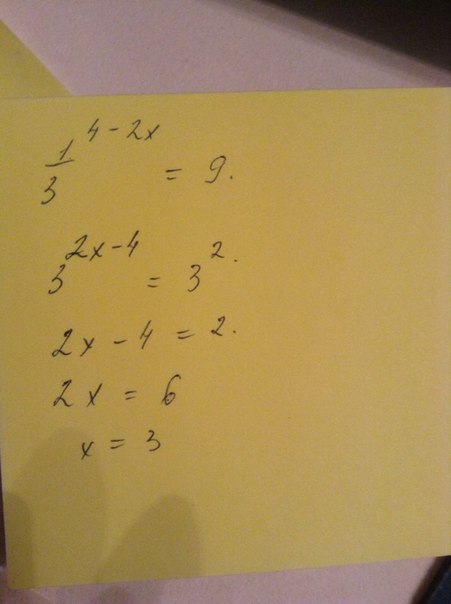 1/3^(4-2x) = 9.
3^(2x-4) = 3^2.
2x - 4 = 2.
2x = 6
x = 3